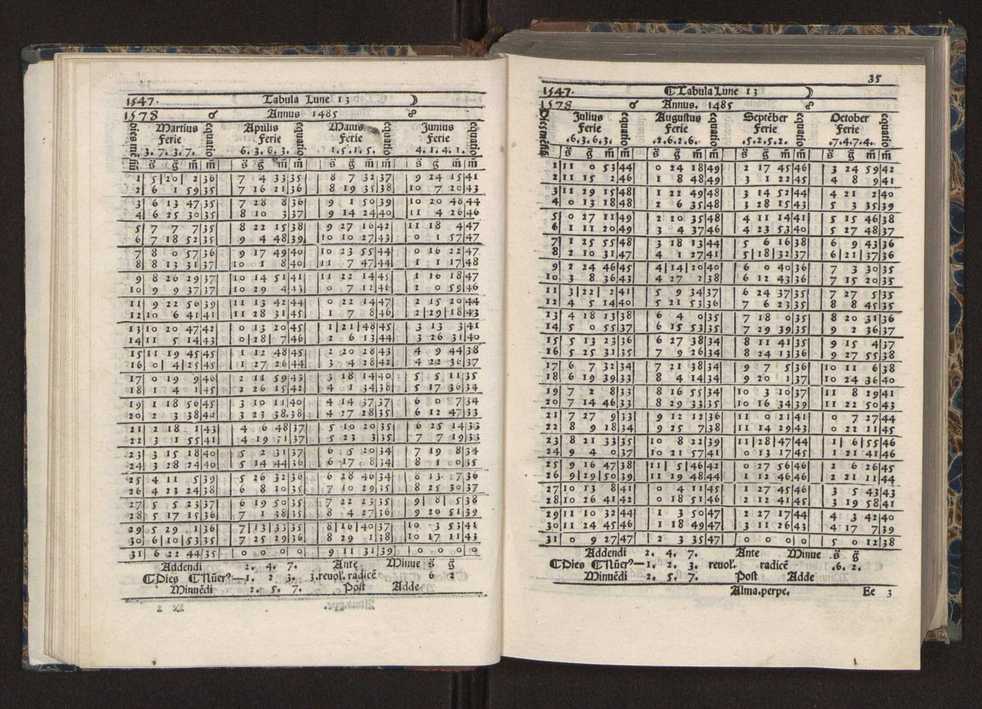 1547. Tabula Lune 13 ☽
1578 ♂ Annus 1485 ☍
Dies mēsiū Martius Ferie .3.7.3.7. equatio Aprilis Ferie 6.3.6.3. equatio Maius Ferie .1.5.1.5. equatio Junius Ferie 4.1.4.1. equatio
s̄ ḡ m̄ m̄ s̄ ḡ m̄ m̄ s̄ ḡ m̄ m̄ s̄ ḡ m̄ m̄
1 5 20 2 36 7 4 33 35 8 7 32 37 9 24 15 41
2 6 1 59 35 7 16 21 36 8 19 35 38 10 7 20 43
3 6 13 47 35 7 28 8 36 9 1 50 39 10 20 48 44
4 6 25 30 35 8 10 3 37 9 14 24 40 11 4 26 46
5 7 7 7 35 8 22 15 38 9 27 16 42 11 18 4 47
6 7 18 52 35 9 4 48 39 10 10 27 43 0 1 57 47
7 8 0 57 36 9 17 49 40 10 23 55 44 0 16 22 47
8 8 13 31 37 10 1 8 40 11 7 47 44 1 1 17 48
9 8 26 29 37 10 14 51 41 11 22 14 45 1 16 18 47
10 9 9 37 37 10 29 4 43 0 7 12 46 2 0 59 46
11 9 22 56 39 11 13 42 44 0 22 14 47 2 15 20 44
12 10 6 41 41 11 28 31 45 1 7 8 46 2 29 18 43
13 10 20 47 42 0 13 20 45 1 21 48 45 3 13 3 41
14 11 5 14 43 0 28 7 46 2 6 13 44 3 26 31 40
15 11 19 45 45 1 12 48 45 2 20 28 43 4 9 44 38
16 0 4 25 45 1 27 26 44 3 4 28 42 4 22 36 37
17 0 19 9 46 2 11 59 43 3 18 14 40 5 5 11 35
18 1 4 1 45 2 26 15 42 4 1 34 38 5 17 36 34
19 1 18 56 45 3 10 11 40 4 14 37 37 6 0 7 34
20 2 3 38 44 3 23 38 38 4 27 28 35 6 12 47 33
21 2 18 1 43 4 6 48 37 5 10 20 35 6 25 14 33
22 3 1 55 41 4 19 51 37 5 23 3 35 7 7 19 33
23 3 15 18 40 5 2 31 37 6 5 20 34 7 19 8 34
24 3 28 24 40 5 14 44 36 6 17 8 34 8 1 0 35
25 4 11 5 39 5 26 32 36 6 28 46 34 8 13 7 36
26 4 23 24 38 6 8 10 35 7 10 29 35 8 25 30 37
27 5 5 23 37 6 19 50 35 7 22 23 35 9 8 5 38
28 5 17 15 36 7 1 38 35 8 4 27 36 9 20 51 39
29 5 29 1 36 7 13 33 35 8 16 40 37 10 3 53 41
30 6 10 53 35 7 25 29 36 8 29 1 38 10 17 11 43
31 6 22 44 35 0 0 0 0 9 11 31 39 0 0 0 0
Addendi 2. 4. 7. Ante Minue s̄ ḡ
☾Dies ☾Nũerꝰ—1. 2. 3. 3.reuol. radicē 6 2
Minuēdi 2. 5. 7. Post Adde
35
1547. ☾Tabula Lune 13 ☽
1578 ♂ Annus. 1485 ☍
Dies mēsiū Julius Ferie .6.3.6.3. equatio Augustus Ferie .2.6.2.6. equatio Septēber Ferie .5.2.5.2. equatio October Ferie .7.4.7.4. equatio
s̄ ḡ m̄ m̄ s̄ ḡ m̄ m̄ s̄ ḡ m̄ m̄ s̄ ḡ m̄ m̄
1 11 0 53 44 0 24 18 49 2 17 45 46 3 24 59 42
2 11 15 2 46 1 8 48 49 3 1 22 45 4 8 9 41
3 11 29 15 48 1 22 49 48 3 14 52 44 4 21 2 40
4 0 13 18 48 2 6 35 48 3 28 15 43 5 3 35 39
5 0 27 11 49 2 20 35 48 4 11 14 41 5 15 46 38
6 1 11 20 49 3 4 37 46 4 23 53 40 5 27 48 37
7 1 25 55 48 3 18 13 44 5 6 16 38 6 9 43 36
8 2 10 31 47 4 1 27 41 5 18 32 37 6 21 37 36
9 2 24 46 45 4 14 20 40 6 0 40 36 7 3 30 35
10 3 8 36 43 4 27 2 38 6 12 43 36 7 15 20 35
11 3 22 2 41 5 9 34 37 6 24 37 35 7 27 5 35
12 4 5 14 40 5 21 53 36 7 6 23 35 8 8 45 35
13 4 18 13 38 6 4 0 35 7 18 0 35 8 20 31 36
14 5 0 55 37 6 15 53 35 7 29 39 35 9 2 36 37
15 5 13 23 36 6 27 38 34 8 11 41 35 9 15 4 37
16 5 25 31 35 7 9 26 34 8 24 13 36 9 27 55 38
17 6 7 32 34 7 21 38 34 9 7 5 36 10 11 6 38
18 6 19 39 33 8 4 14 34 9 20 1 37 10 24 36 40
19 7 2 8 33 8 16 55 34 10 3 10 37 11 8 29 41
20 7 14 46 33 8 29 33 35 10 16 34 39 11 22 50 43
21 7 27 9 33 9 12 12 36 11 0 21 41 0 7 27 44
22 8 9 18 34 9 25 7 38 11 14 29 43 0 22 11 45
23 8 21 33 35 10 8 22 39 11 28 47 44 1 6 55 46
24 9 4 0 37 10 21 57 41 0 13 17 45 1 21 41 46
25 9 16 47 38 11 5 46 42 0 27 56 46 2 6 26 45
26 9 29 50 39 11 19 48 44 1 12 46 46 2 21 11 44
27 10 13 8 41 0 4 11 45 1 27 45 46 3 5 43 43
28 10 26 41 42 0 18 51 46 2 12 41 45 3 19 58 41
29 11 10 32 44 1 3 50 47 2 27 17 44 4 3 42 40
30 11 24 45 46 1 18 49 47 3 11 26 43 4 17 7 39
31 0 9 27 47 2 3 35 47 0 0 0 0 5 0 12 38
Addendi 2. 4. 7. Ante Minue .s̄ ḡ
☾Dies ☾Nũerꝰ—1. 2. 3. reuol. radicē .6. 2.
Minuēdi 2. 5. 7. Post Adde
Alma.perpe. Ee 3